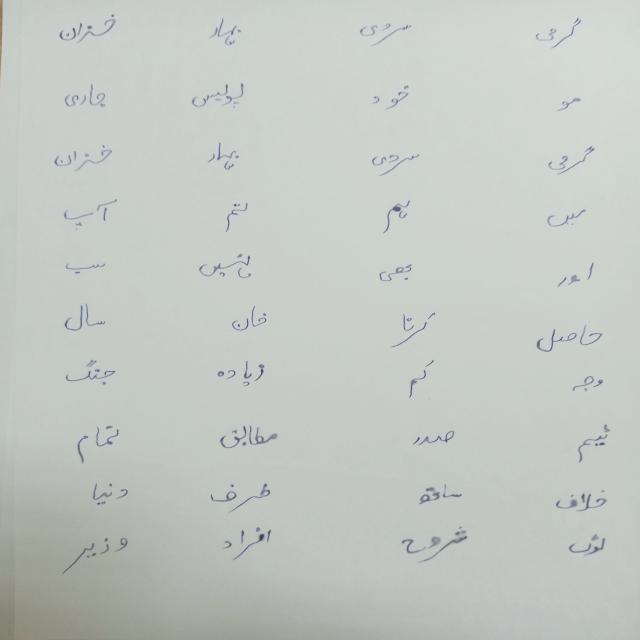 گرمی سردی بہار خزاں
ہو خود پولیس جاری
گرمی سردی بہار خزاں
میں ہم تم آپ
اور بھی نہیں سب
حاصل کرنا خان سال
وجہ کم زیادہ جنگ
ٹیم صدر مطابق تمام
خلاف ساتھ طرف دنیا
شروع افراد وزیر